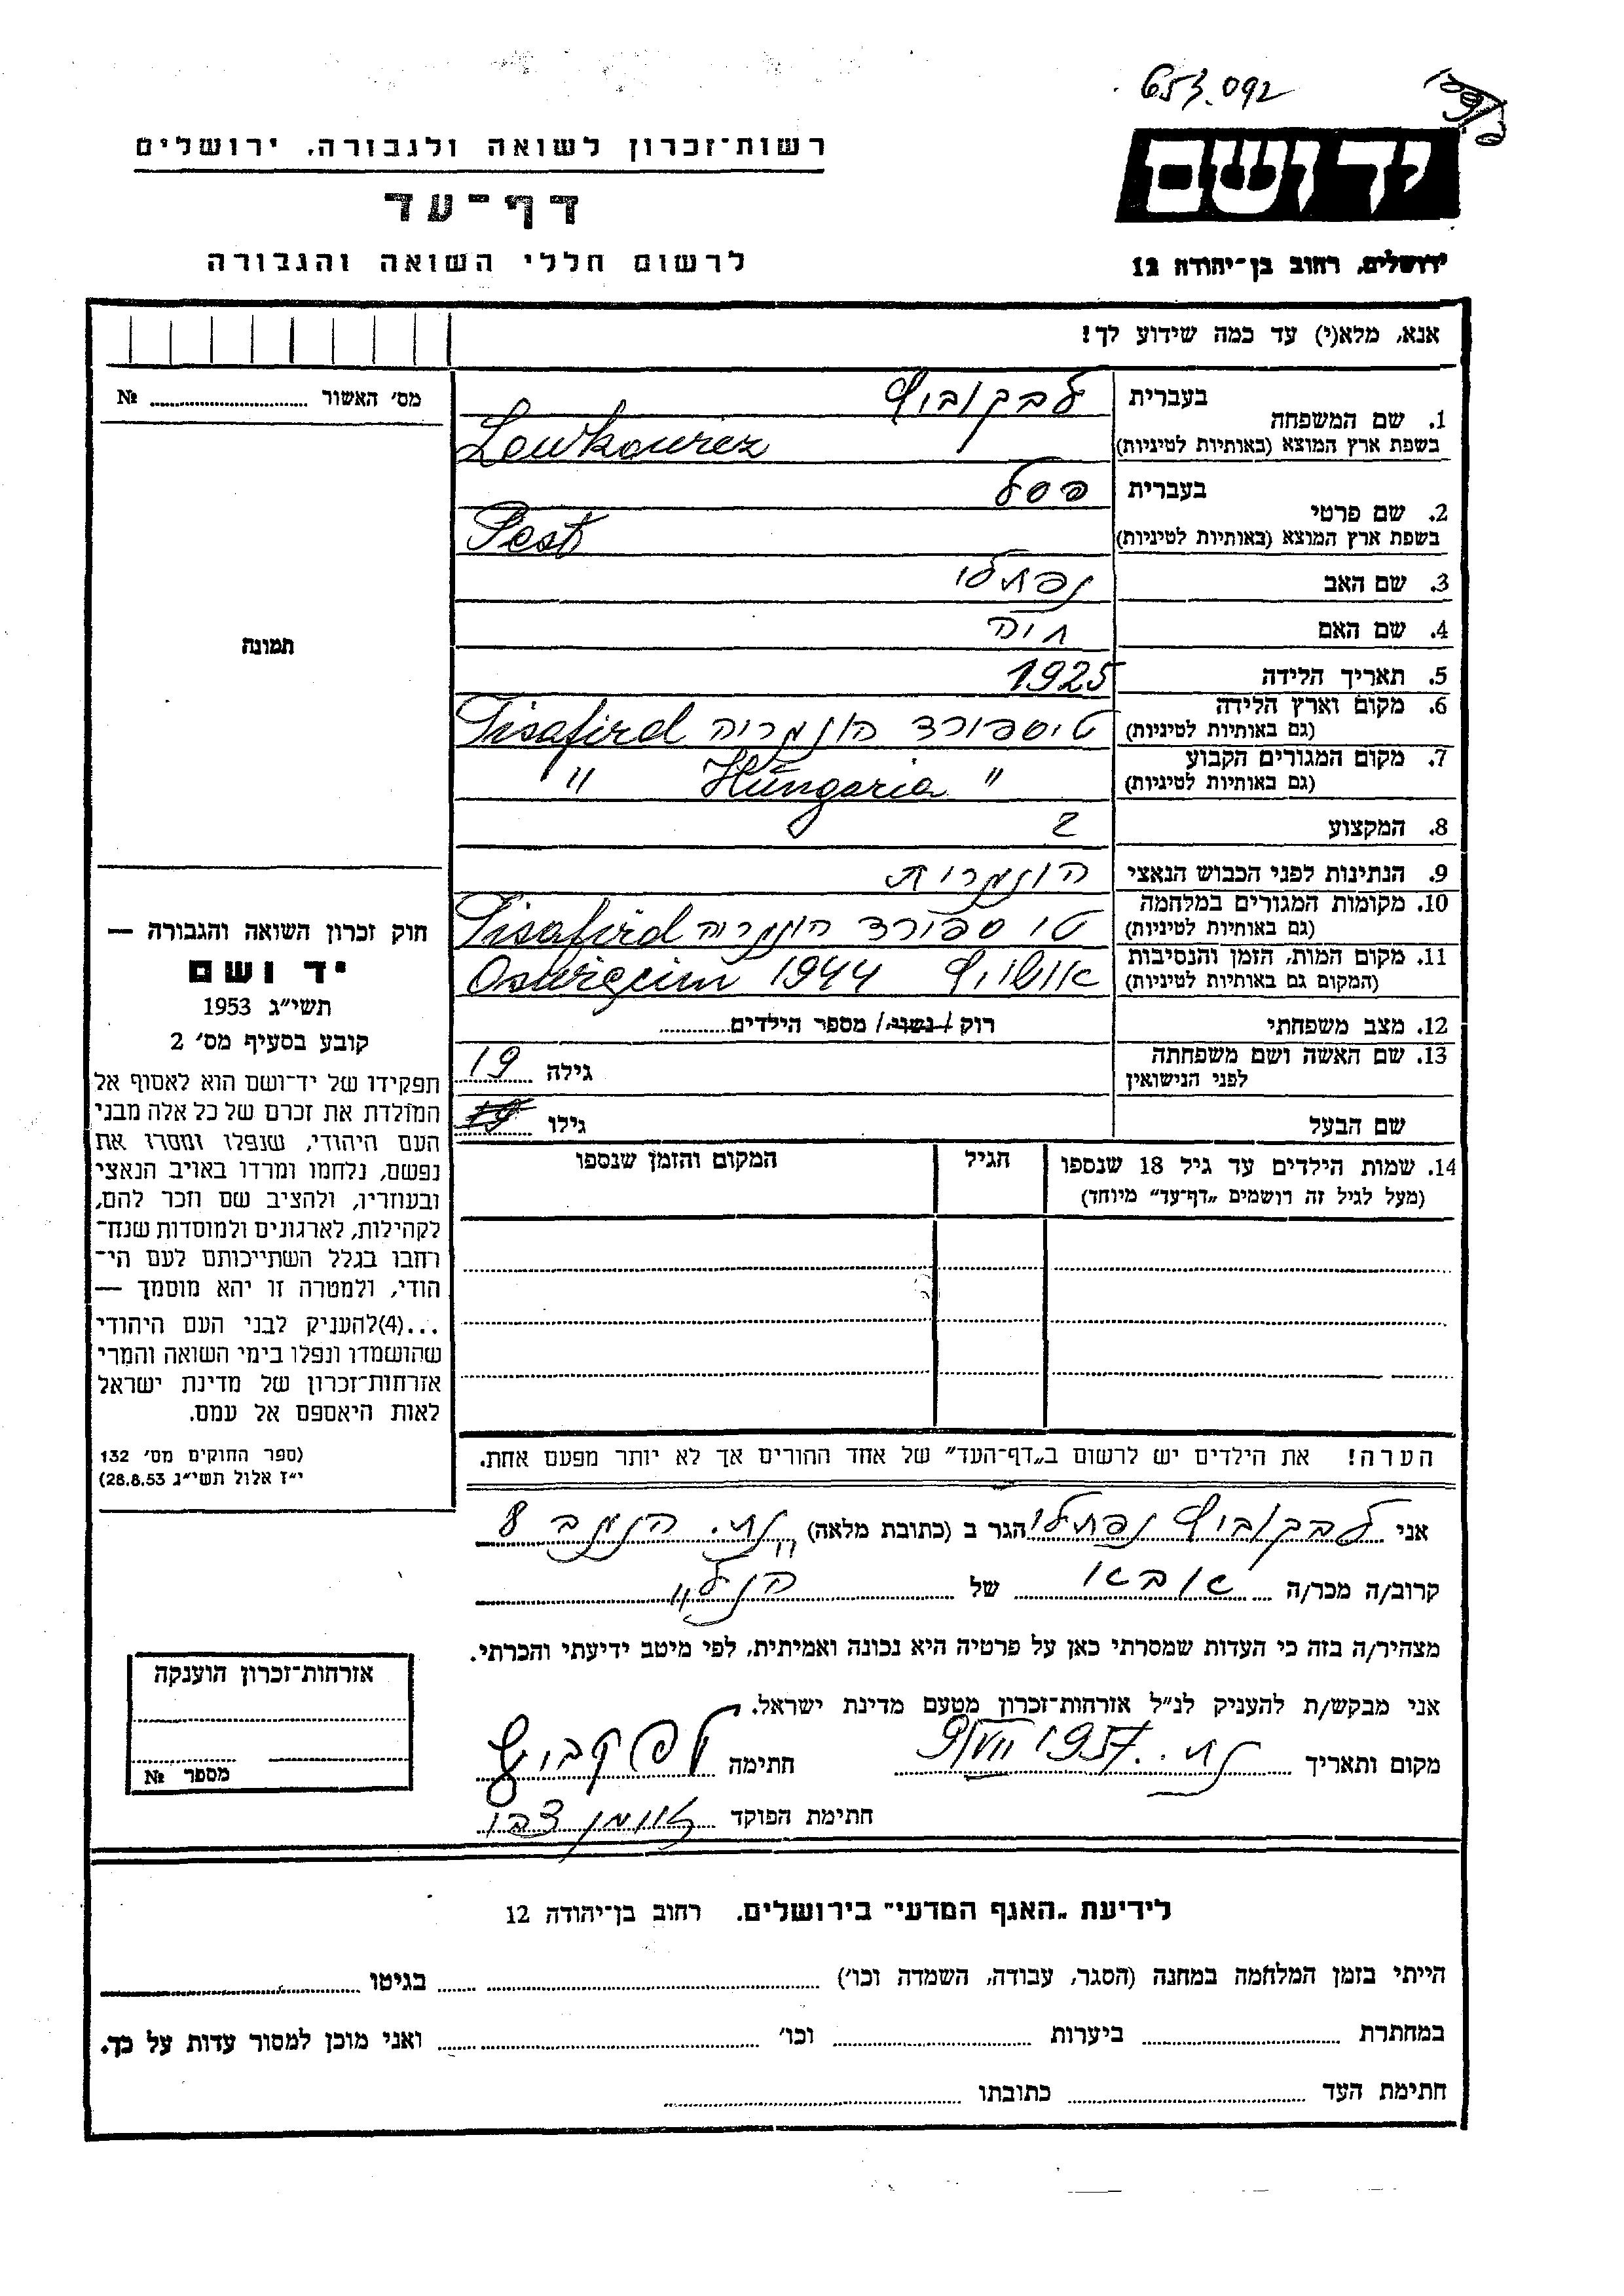 653.092
יד ושם
ירושלים, רחוב בן־יהודה 12
רשות־זכרון לשואה ולגבורה, ירושלים
דף־עד
לרשום חללי השואה והגבורה
אנא, מלא(י) עד כמה שידוע לך!
מס׳ האשור № 
תמונה
חוק זכרון השואה והגבורה —
יד ושם
תשי״ג 1953
קובע בסעיף מס׳ 2
תפקידו של יד־ושם הוא לאסוף אל
המולדת את זכרם של כל אלה מבני
העם היהודי, שנפלו ומסרו את
נפשם, נלחמו ומרדו באויב הנאצי
ובעוזריו, ולהציב שם וזכר להם,
לקהילות, לארגונים ולמוסדות שנח־
רחבו בגלל השתייכותם לעם הי־
הודי, ולמטרה זו יהא מוסמך —
...(4)להעניק לבני העם היהודי
שהושמדו ונפלו בימי השואה והמרי
אזרחות־זכרון של מדינת ישראל
לאות היאספם אל עמם.
(ספר החוקים מס׳ 132
י״ז אלול תשי״ג 28.8.53)
1. שם המשפחה בעברית לבקוביץ
בשפת ארץ המוצא (באותיות לטיניות) Lewkowicz
2. שם פרטי בעברית פסל
בשפת ארץ המוצא (באותיות לטיניות) Pesl
3. שם האב נפתלי
4. שם האם חיה
5. תאריך הלידה 1925
6. מקום וארץ הלידה (גם באותיות לטיניות) טיספורד הונגריה Tisafird
7. מקום המגורים הקבוע (גם באותיות לטיניות) " Hungaria "
8. המקצוע
9. הנתינות לפני הכבוש הנאצי הונגרית
10. מקומות המגורים במלחמה (גם באותיות לטיניות) טיספורד הונגריה Tisafird
11. מקום המות, הזמן והנסיבות (המקום גם באותיות לטיניות) אושויץ 1944 Oswięcim
12. מצב משפחתי רוק / נשוי / מספר הילדים
13. שם האשה ושם משפחתה לפני הנישואין גילה 19
שם הבעל גילו
14. שמות הילדים עד גיל 18 שנספו הגיל המקום והזמן שנספו
(מעל לגיל זה רושמים „דף־עד״ מיוחד)
הערה! את הילדים יש לרשום ב„דף־העד״ של אחד ההורים אך לא יותר מפעם אחת.
אני לבקוביץ נפתלי הגר ב (כתובת מלאה) נת. הנגב 8
קרוב/ה מכר/ה אבא של הנ"ל
מצהיר/ה בזה כי העדות שמסרתי כאן על פרטיה היא נכונה ואמיתית, לפי מיטב ידיעתי והכרתי.
אני מבקש/ת להעניק לנ״ל אזרחות־זכרון מטעם מדינת ישראל.
מקום ותאריך נת. 9/VII 1957 חתימה לפקביץ
חתימת הפוקד
אזרחות־זכרון הוענקה
מספר №
לידיעת „האגף המדעי״ בירושלים. רחוב בן־יהודה 12
הייתי בזמן המלחמה במחנה (הסגר, עבודה, השמדה וכו׳) בגיטו
במחתרת ביערות וכו׳ ואני מוכן למסור עדות על כך.
חתימת העד כתובתו